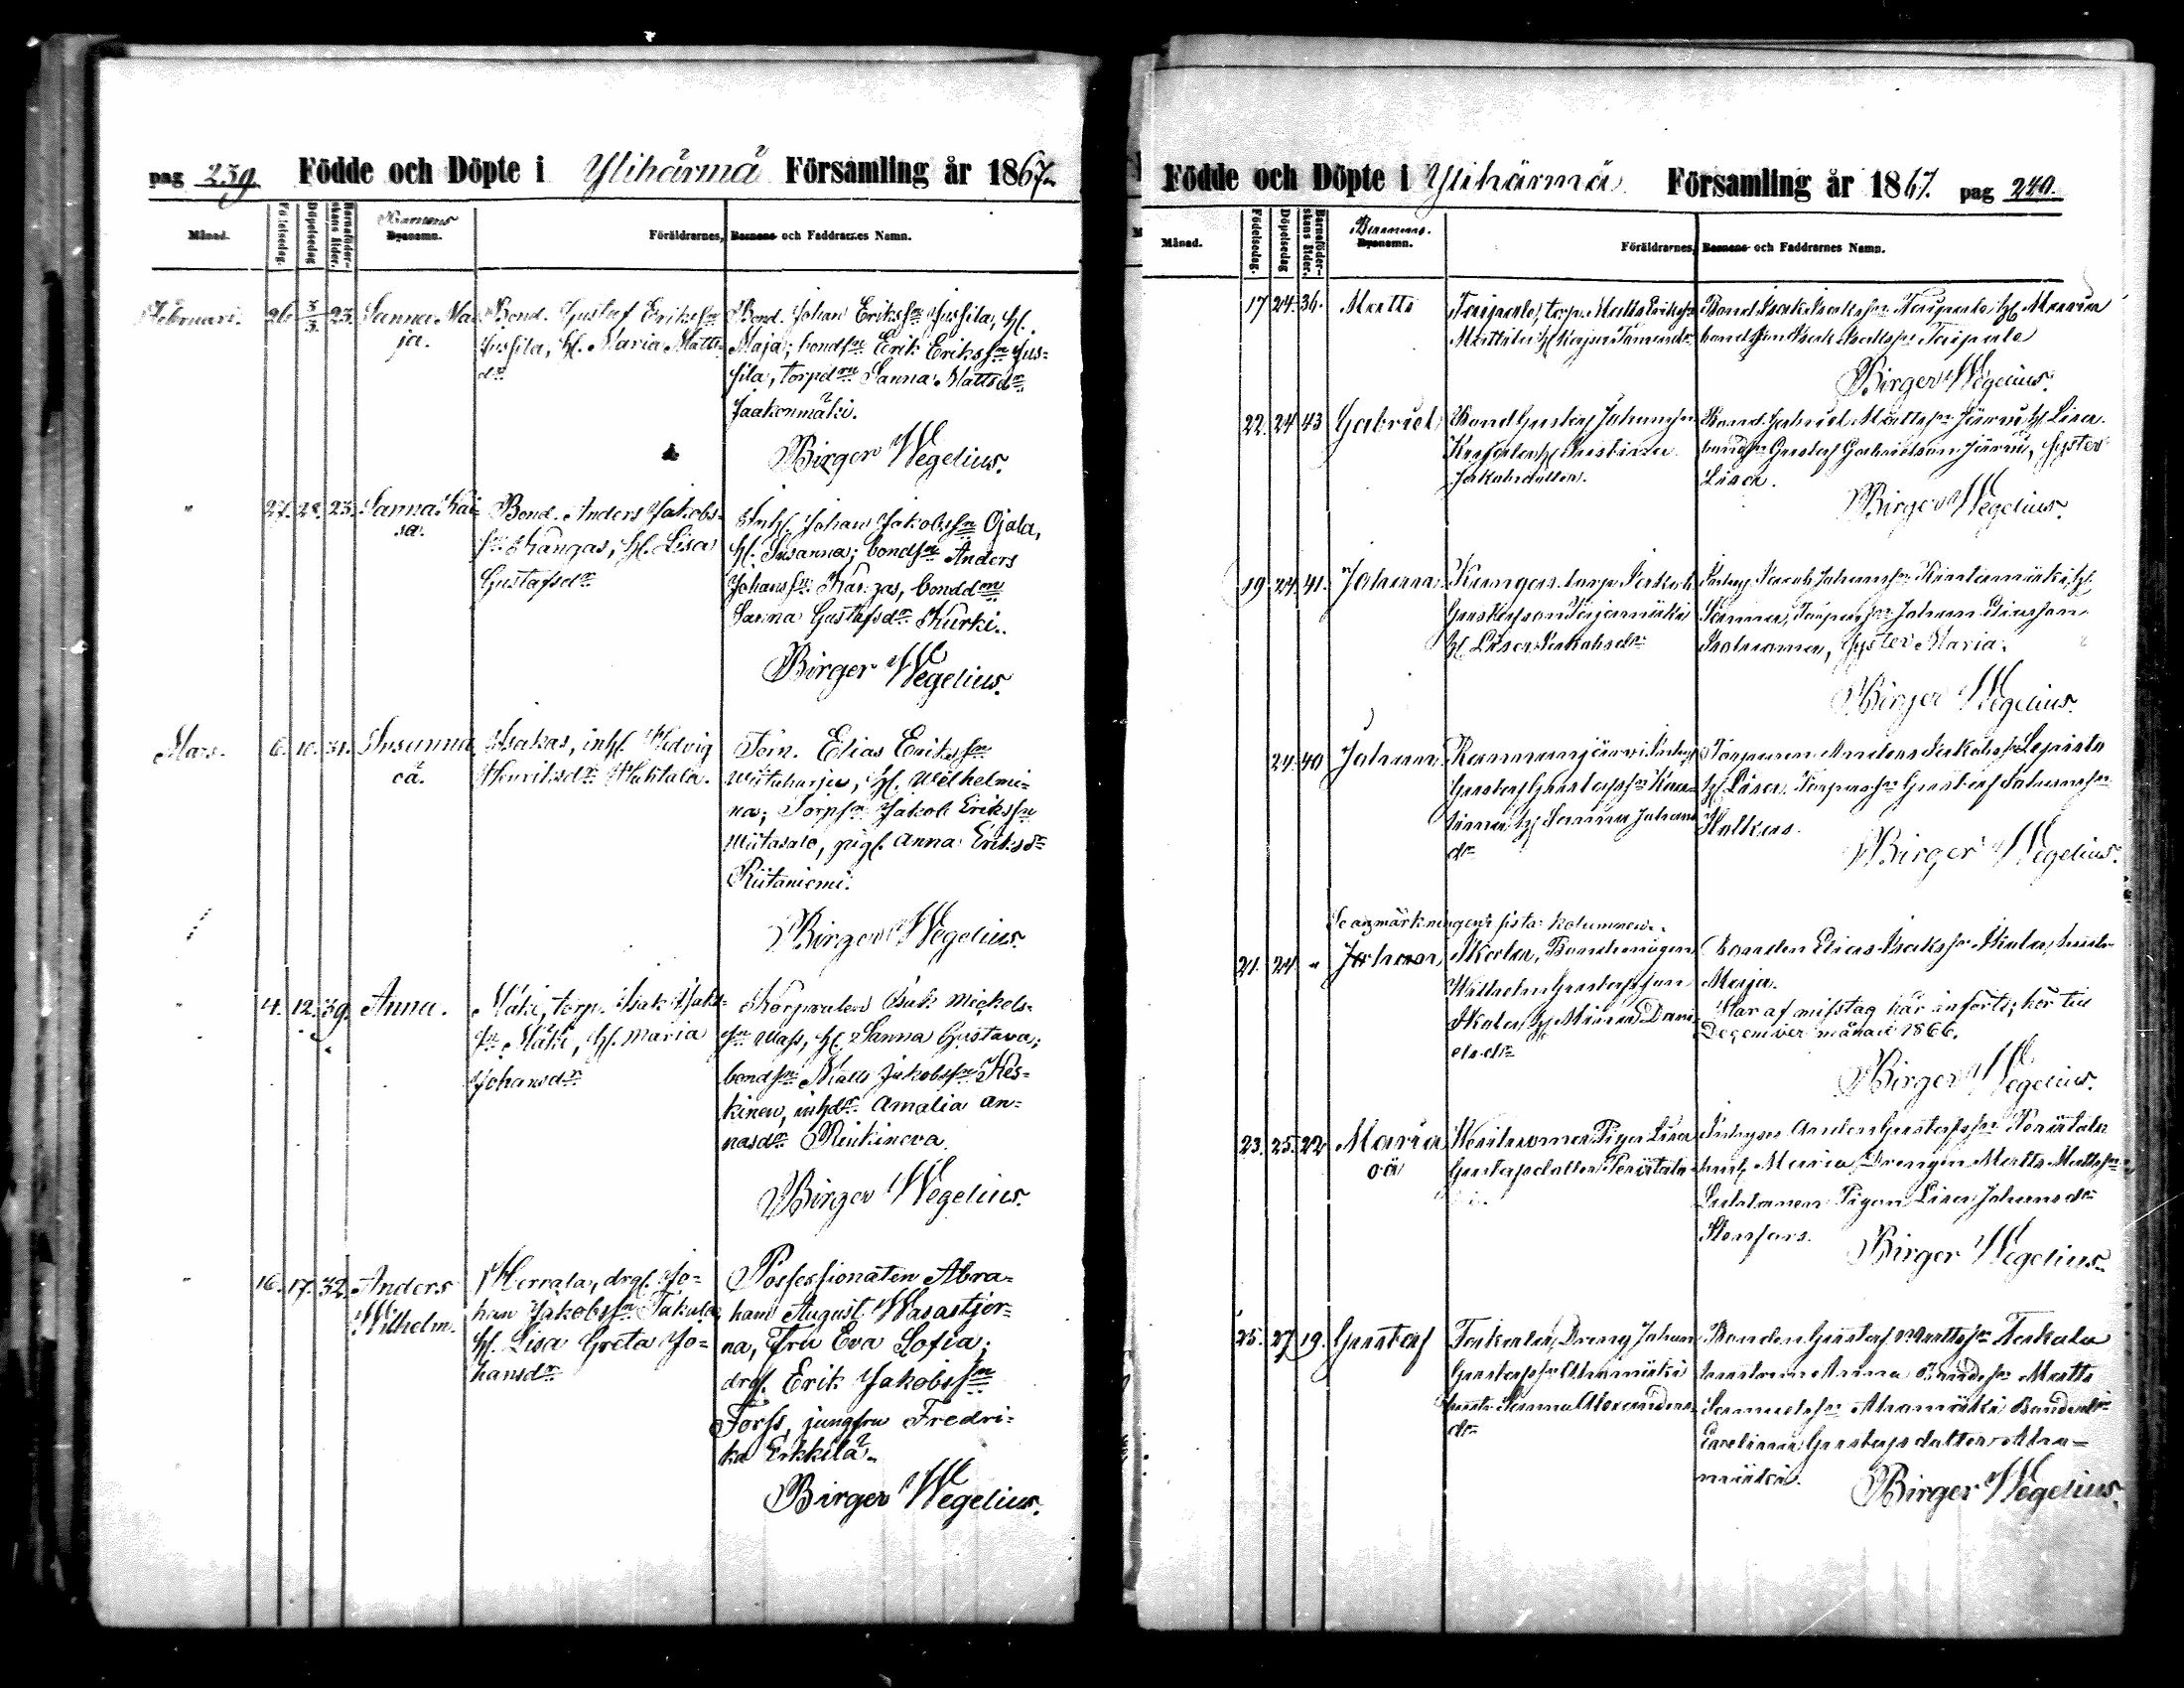 pag 239. Födde och Döpte i Ylihärmä Församling år 1867.
Månad. Födelsedag. Döpelsedag Barnaföder-skans ålder. Barnens Bysnamn. Föräldrarnes, Barnens och Faddrarnes Namn.
Februari. 26. 3/3. 23. Sanna Ma-
ja.
Bond. Gustaf Eriksſn
Jusſila, H. Maria Matts-
dr
Bond. Johan Eriksſn Jusſila, H.
Maja; bondſn Erik Eriksſn Jus=
sila, torpdrn Sanna Mattsdr
Jaakonmäki.
Birger Wegelius.
" 27. 28. 23. Sanna Kai-
sa.
Bond. Anders Jakobs-
ſn Kangas, H. Lisa
Gustafsdr
Inh. Johan Jakobsſn Ojala,
H. Susanna; bondſn Anders
Johansſn Kangas, bonddrn
Sanna Gustafsdr Kurki.
Birger Wegelius.
Mars. 6. 10. 31. Susanna
oä.
Isakas, inh. Hedvig
Henriksdr Huhtala.
Torn. Elias Eriksſn
Wiitaharju, H. Wilhelmi=
na; Torpſn Jakob Eriksſn
Wiitasalo, pig. Anna Eriksdr
Riitaniemi.
Birger Wegelius.
" 4. 12. 39. Anna.
Mäki, torp. Isak Isaks-
ſn Mäki, H. Maria
Johansdr
Korpralen Isak Mickels-
ſn Wass, H. Sanna Gustava;
bondſn Matts Jakobsſn Kes=
kinen, inhdr Amalia An=
nasdr Rinkineva.
Birger Wegelius.
" 16. 17. 32. Anders
Wilhelm.
Herrala, drg. Jo=
han Jakobsſn Takala,
H. Lisa Greta Jo=
hansdr
Possessionaten Abra=
ham August Wasastjer=
na, Fru Eva Sofia;
drg. Erik Jakobsſn
Forss, jungfru Fredri=
ka Erkkilä.
Birger Wegelius.
Födde och Döpte i Ylihärmä Församling år 1867. pag 240.
Månad. Födelsedag. Döpelsedag Barnaföder-skans ålder. Barnens. Bysnamn. Föräldrarnes, Barnens och Faddrarnes Namn.
17 24. 36. Matts
Taipale, torp. Matts Eriksſn
Mattila H. Kajsa
Bond Isak Isaksſn Taipale, H. Maria
bondſon Isak Isaksſn Taipale
Birger Wegelius.
22. 24 43 Gabriel
Bond Gustaf Johansſn
H. Kristina
Jakobsdotter.
Bond. Gabriel Mattsſn Järvi, H. Lisa.
bondſn Gustaf Gabrielsson Järvi, Syster
Lisa.
Birger Wegelius.
19 24. 41. Johanna
Kangas torp Jakob
Gustafsson
H. Lisa Jakobsdr
Inhys Jacob Johansſn Rintamäki, H.
Sanna, Torparſn Johan
Syster Maria.
Birger Wegelius.
24. 40 Johan
Kammarijärvi Inhys
Gustaf Gustafsſn
H. Sanna Johans
dr
Torparen Anders Jakobsſn Lepistö
H. Lisa. Torparſn Gustaf Johansſn
Birger Wegelius.
Se anmärkningen i sista kolumnen.
21. 24 " Johan
Skala, Bondemågen
Wilhelm Gustafsson
Skala, H. Miina Dani-
elsdr
Bonden Elias Isaksſn Skala, hustr.
Maja.
Har af misstag här införts, hör till
December månad 1866.
Birger Wegelius.
23. 25. 22 Maria
oä
Pigan Lisa
Gustafsdotter Perätalo
Inhyses Anders Gustafsſn Perätalo
hust. Maria, Drengen Matts Mattsſn
Pigan Lisa Johansdr
Stenfors.
Birger Wegelius.
25. 27 19. Gustaf
Takala, Dreng Johan
Gustafsſn Ahomäki
hustr. Sanna Alexanders
dr
Bonden Gustaf Mattsſn Takala
hustrun Anna Bondeſn Matts
Samuelsſn Ahomäki Bondedr
Evelina Gustafsdotter Aho=
mäki.
Birger Wegelius.